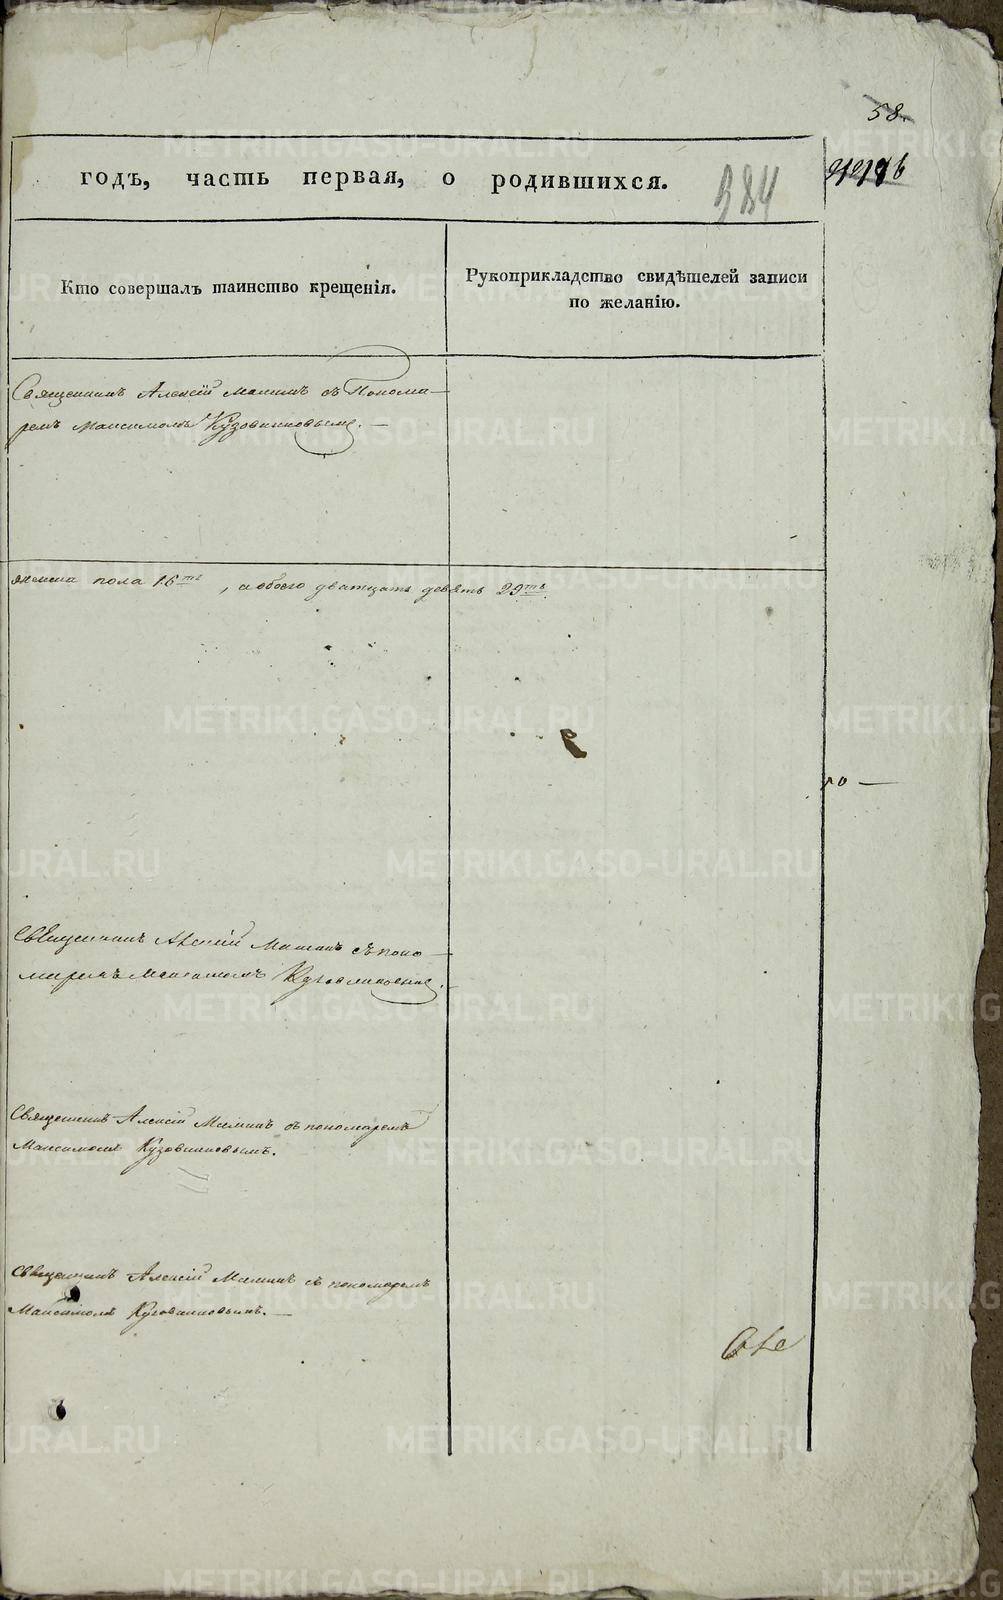 58.
годъ, часть первая, о родившихся.
384
Кто совершалъ таинство крещенія.
Рукоприкладство свидѣтелей записи
по желанію.
Священникъ Алексій Маминъ съ Понома-
ремъ Максимомъ Кузовниковымъ.
женска пола 16ть, а обоего дватцать девять 29ть.
Священникъ Алексій Маминъ съ поно-
маремъ Максимомъ Кузовниковымъ.
Священникъ Алексій Маминъ съ пономаремъ
Максимомъ Кузовниковымъ.
Священникъ Алексій Маминъ съ пономаремъ
Максимомъ Кузовниковымъ.
METRIKI.GASO-URAL.RU